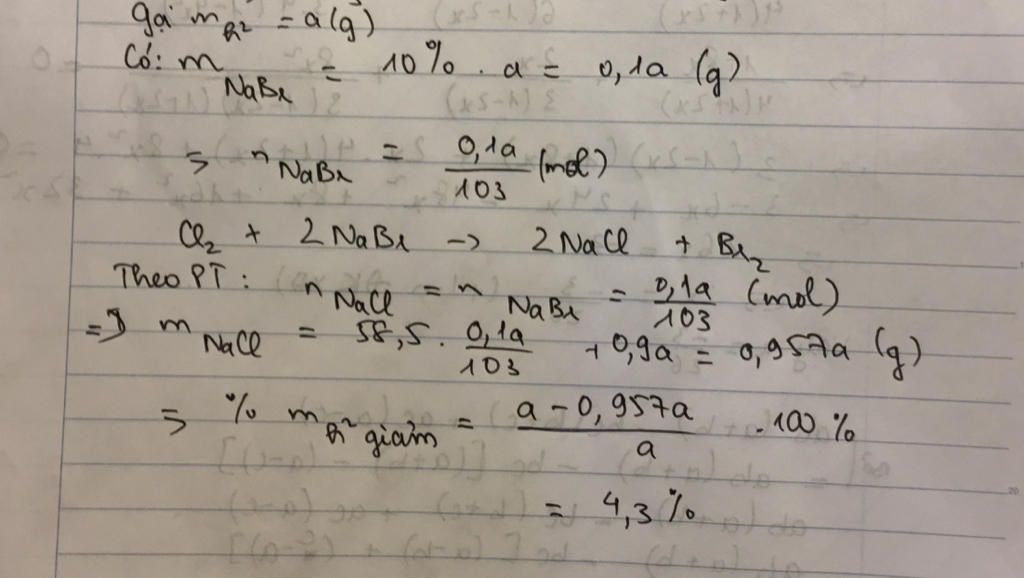 Gọi m_{h²} = a(g)
Có: m_{NaBr} = 10% . a = 0,1a (g)
=> n_{NaBr} = \frac{0,1a}{103} (mol)
Cl₂ + 2NaBr -> 2NaCl + Br₂
Theo PT: n_{NaCl} = n_{NaBr} = \frac{0,1a}{103} (mol)
=> m_{NaCl} = 58,5 . \frac{0,1a}{103} + 0,9a = 0,957a (g)
=> % m_{h² giảm} = \frac{a - 0,957a}{a} . 100%
= 4,3%